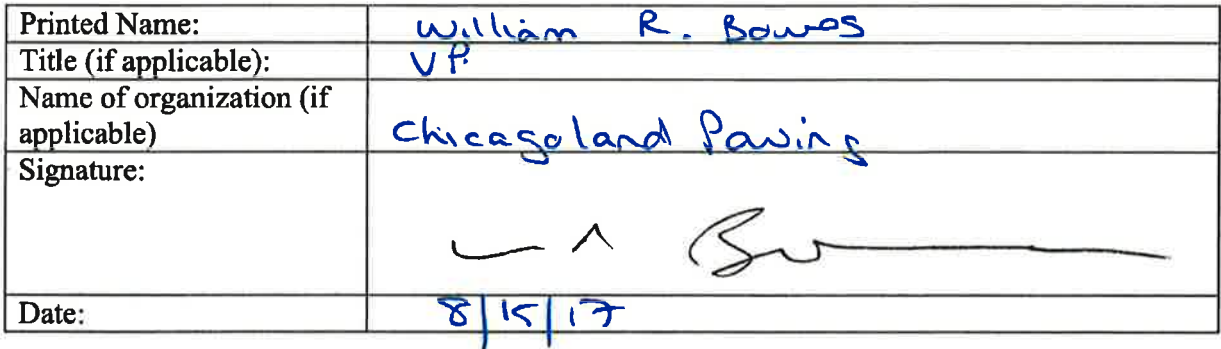 Printed Name: William R. Bowes
Title (if applicable): VP.
Name of organization (if
applicable) Chicagoland Paving
Signature:
Date: 8/15/17